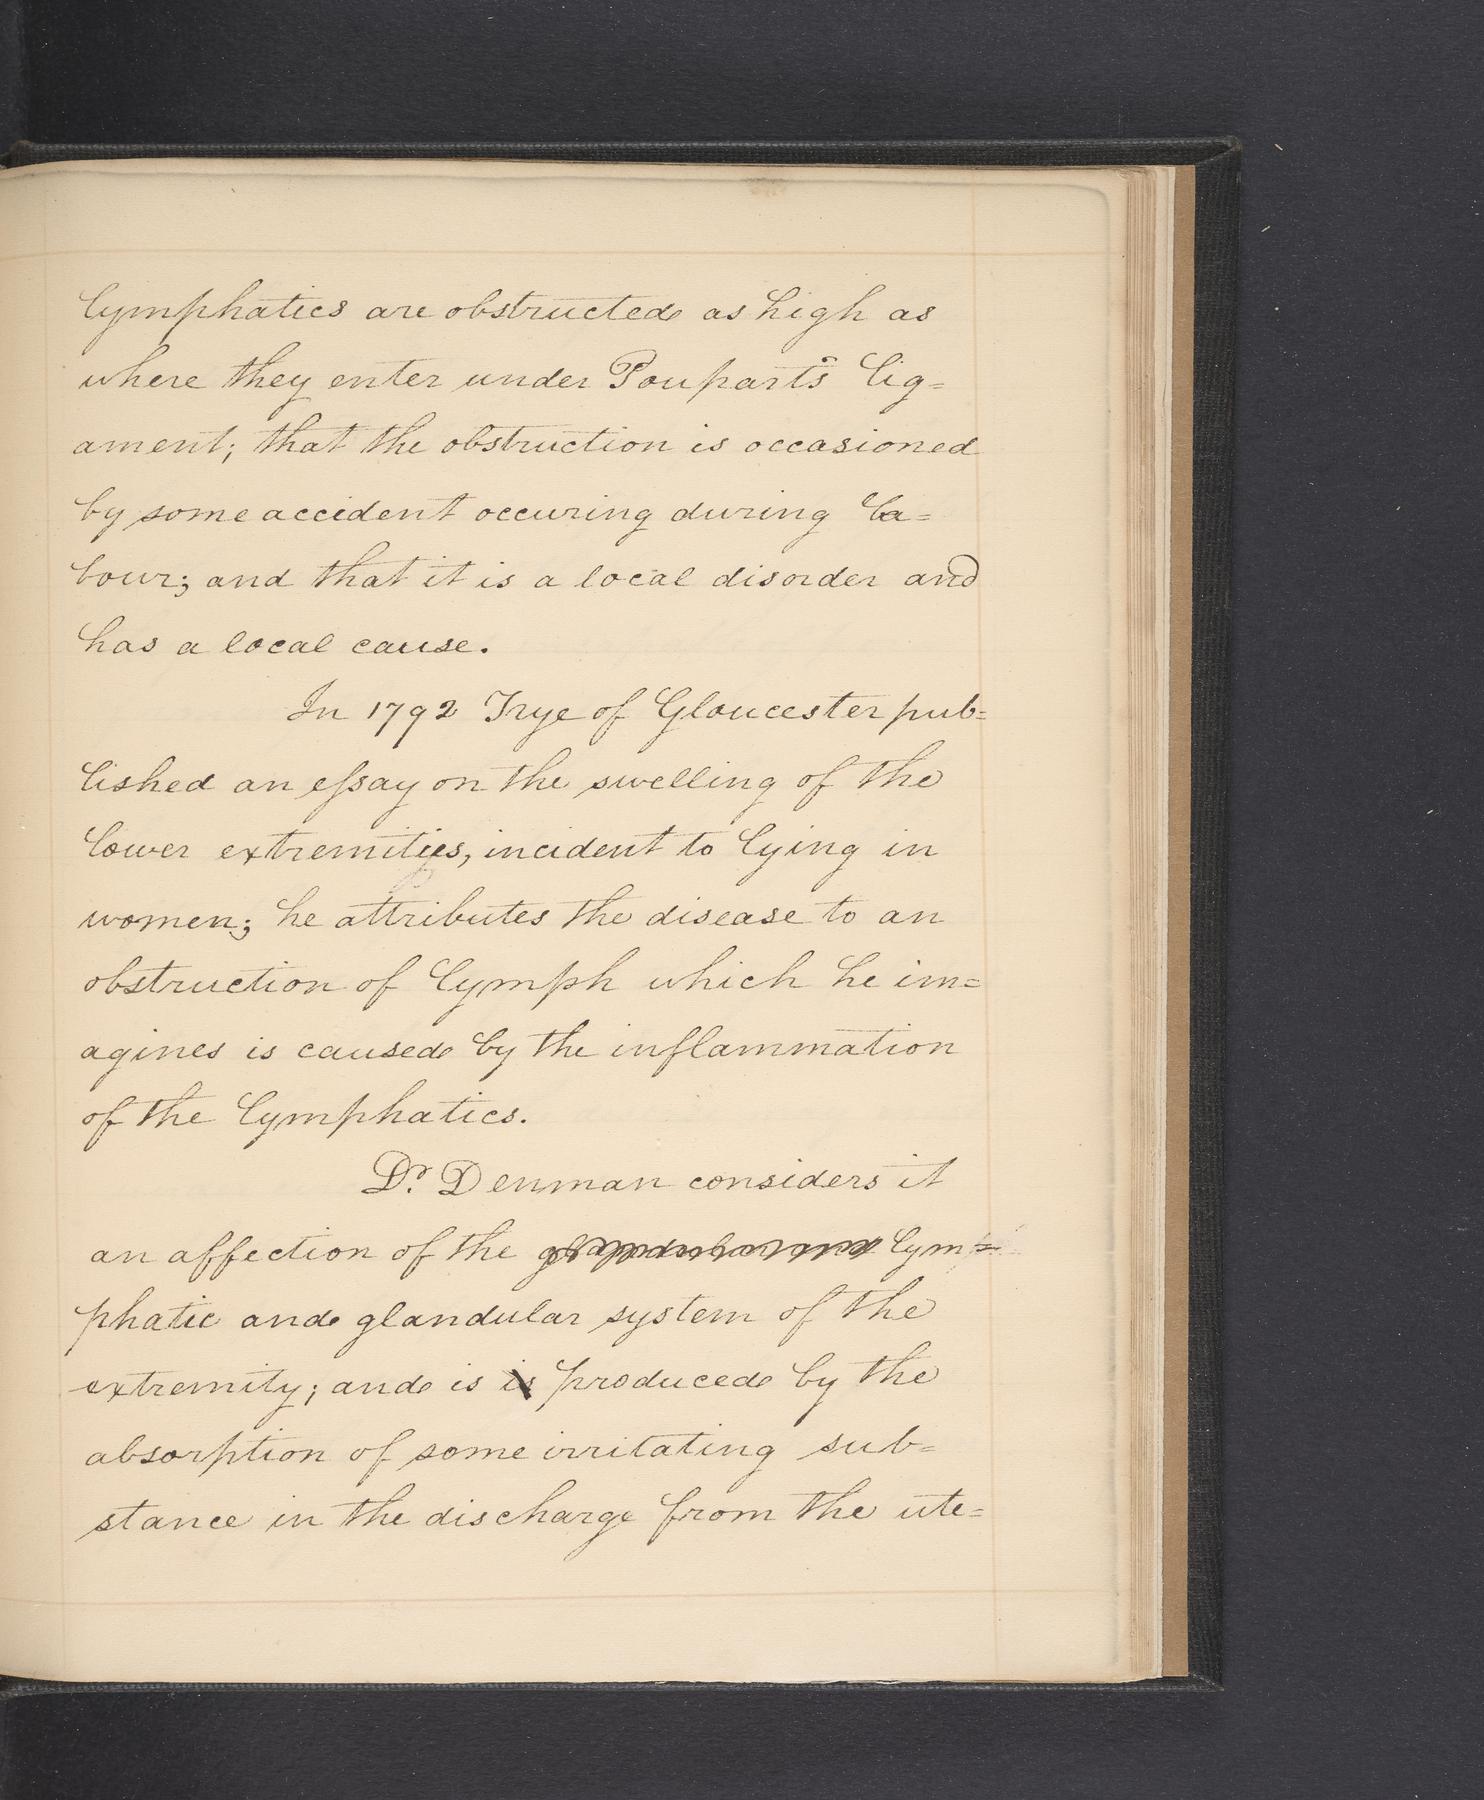 lymphatics are obstructed as high as
where they enter under Poupart's lig=
ament; that the obstruction is occasioned
by some accident occuring during la=
bour; and that it is a local disorder and
has a local cause.
In 1792 Trye of Gloucester pub=
lished an essay on the swelling of the
lower extremities, incident to lying in
women; he attributes the disease to an
obstruction of lymph which he im=
agines is caused by the inflammation
of the lymphatics.
Dr. Denman considers it
an affection of the lym=
phatic and glandular system of the
extremity; and is is produced by the
absorption of some irritating sub=
stance in the discharge from the ute=